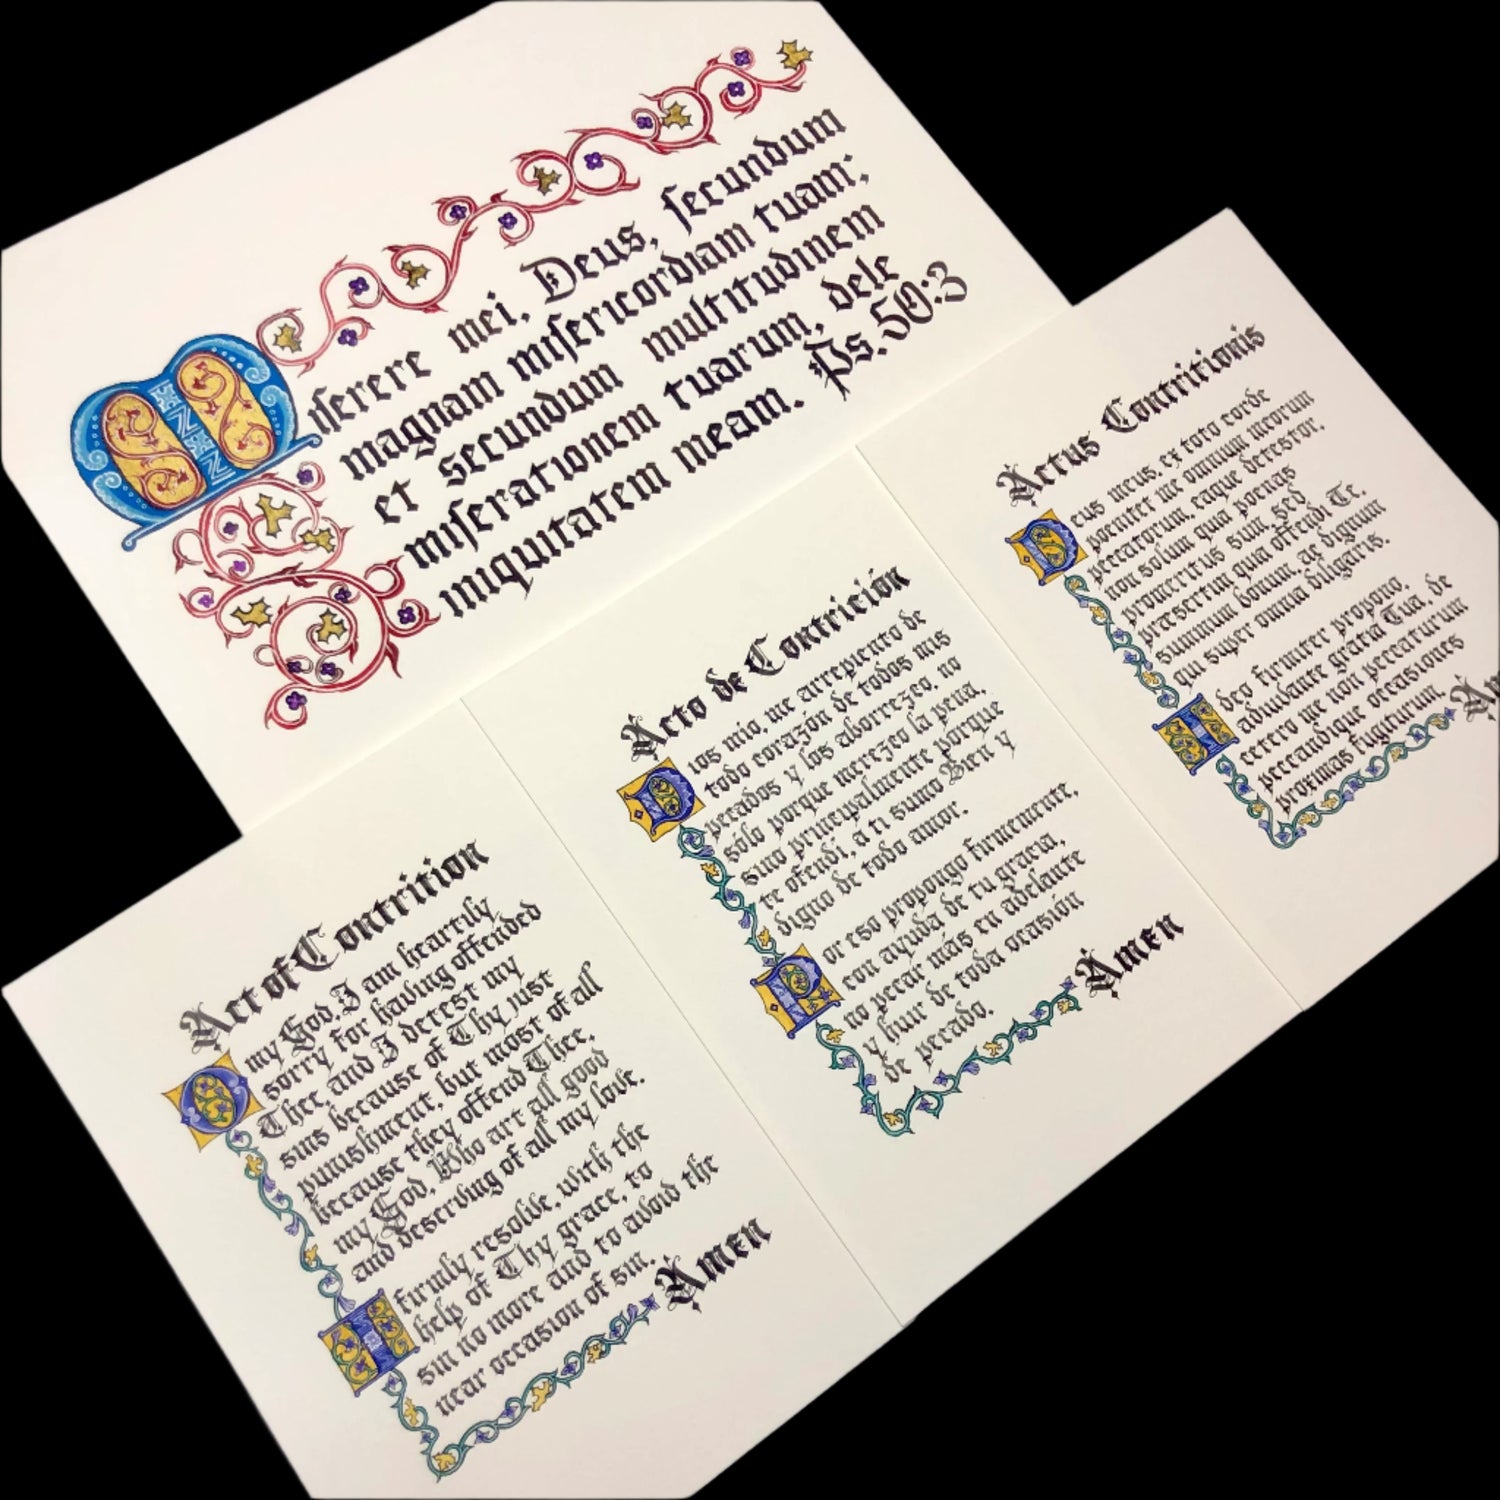 Miserere mei, Deus, secundum
magnam misericordiam tuam;
et secundum multitudinem
miserationem tuarum, dele
iniquitatem meam. Ps. 50:3
Act of Contrition
O my God, I am heartily
sorry for having offended
Thee, and I detest my
sins because of Thy just
punishment, but most of all
because they offend Thee,
my God, Who art all good
and deserving of all my love.
I firmly resolve, with the
help of Thy grace, to
sin no more and to avoid the
near occasion of sin.
Amen
Acto de Contrición
Dios mío, me arrepiento de
todo corazón de todos mis
pecados y los aborrezco, no
sólo porque merezco la pena,
sino principalmente porque
te ofendí, a ti sumo Bien y
digno de todo amor.
Por eso propongo firmemente,
con ayuda de tu gracia,
no pecar más en adelante
y huir de toda ocasión
de pecado.
Amen
Actus Contritionis
Deus meus, ex toto corde
poenitet me omnium meorum
peccatorum, eaque detestor,
non solum quia poenas
promeritus sum, sed
præsertim quia offendi Te,
summum bonum, ac dignum
qui super omnia diligaris.
Ideo firmiter propono,
adiuvante gratia Tua, de
cetero me non peccaturum
peccandique occasiones
proximas fugiturum.
Am